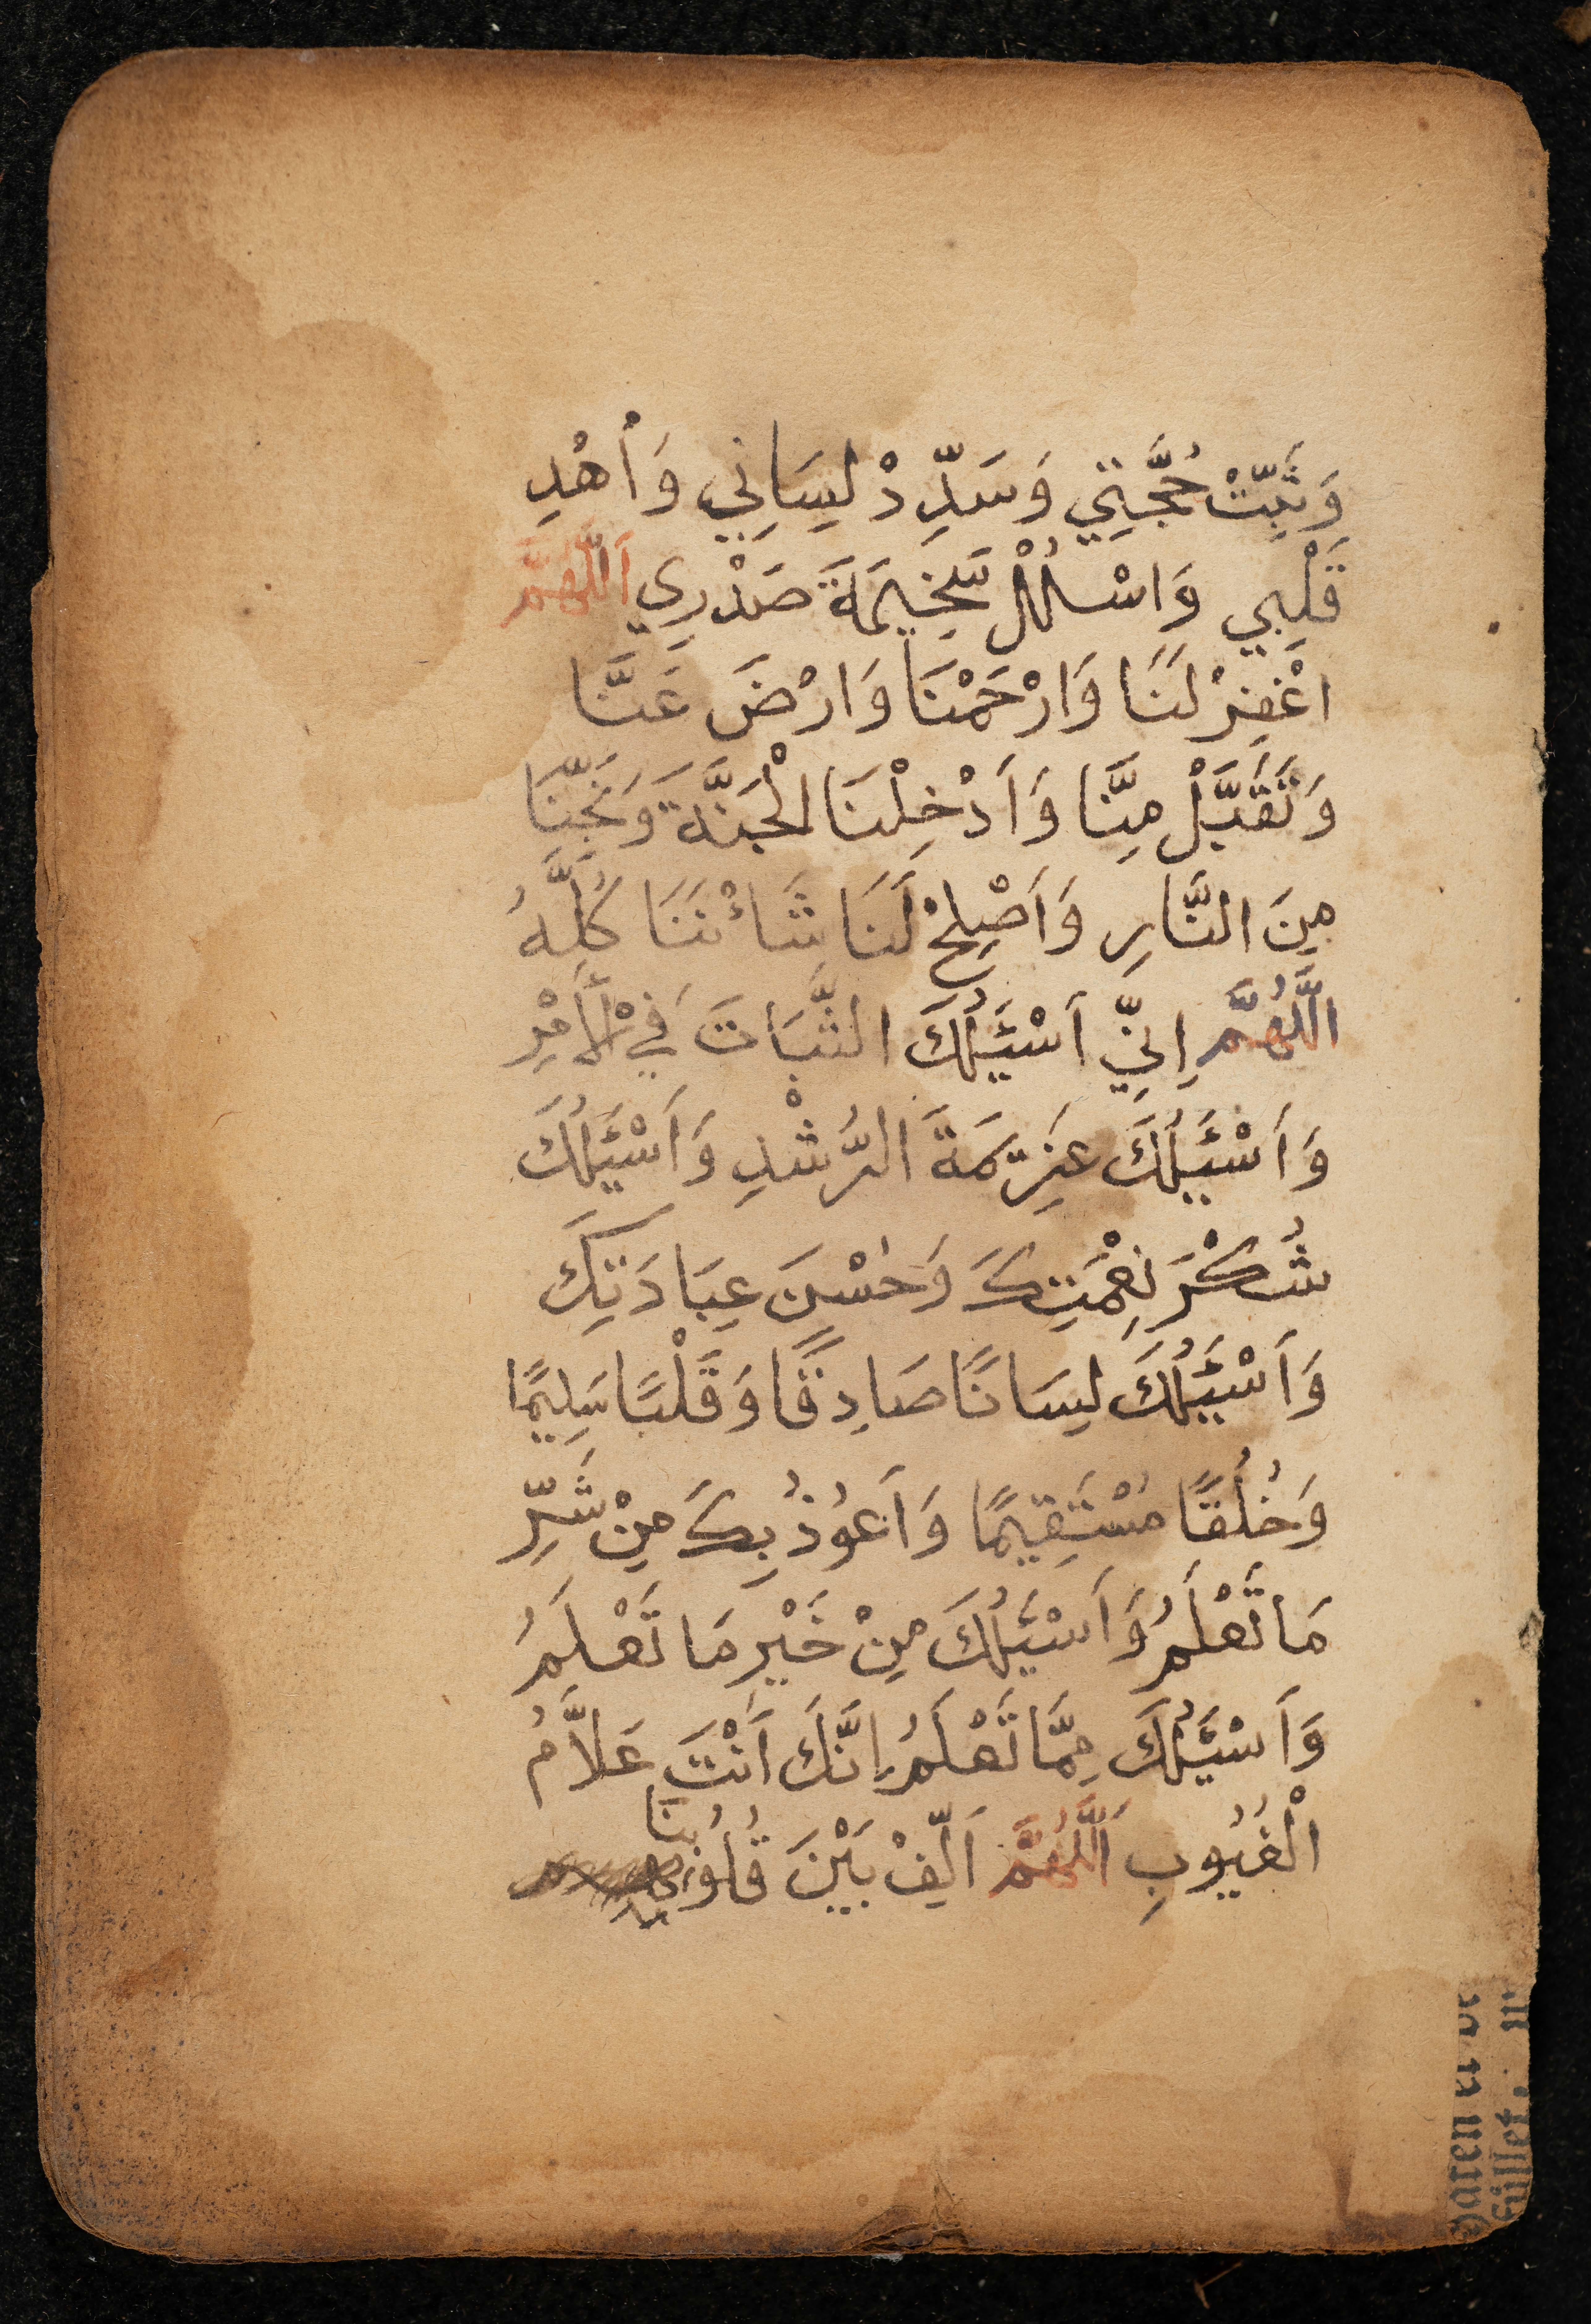 وَثَبِّتْ حُجَّتِي وَسَدِّدْ لِسَانِي وَأهْدِ
قَلْبِي وَاسْلُلْ سَخِيمَةَ صَدْرِي اَللَّهُمَّ
اغْفِرْ لَنَا وَارْحَمْنَا وَارْضَ عَنَّا
وَتَقَبَّلْ مِنَّا وَاَدْخِلْنَا الْجَنَّةَ وَنَجِّنَا
مِنَ النَّارِ وَاَصْلِحْ لَنَا شَاْئنَنَا كُلَّهُ
اللَّهُمَّ اِنِّي اَسْئَلُكَ الثَّبَاتَ فِي الْأَمْرِ
وَاَسْئَلُكَ عَزِيمَةَ الرُّشْدِ وَاَسْئَلُكَ
شُكْرَ نِعْمَتِكَ وَحُسْنَ عِبَادَتِكَ
وَاَسْئَلُكَ لِسَانًا صَادِقًا وَقَلْبًا سَلِيمًا
وَخُلُقًا مُسْتَقِيمًا وَاَعُوذُ بِكَ مِنْ شَرِّ
مَا تَعْلَمُ وَاَسْئَلُكَ مِنْ خَيْرِ مَا تَعْلَمُ
وَاَسْئَلُكَ مِمَّا تَعْلَمُ اِنَّكَ اَنْتَ عَلاَّمُ
الْغُيُوبِ اَللَّهُمَّ اَلِّفْ بَيْنَ قُلُوبِنَا